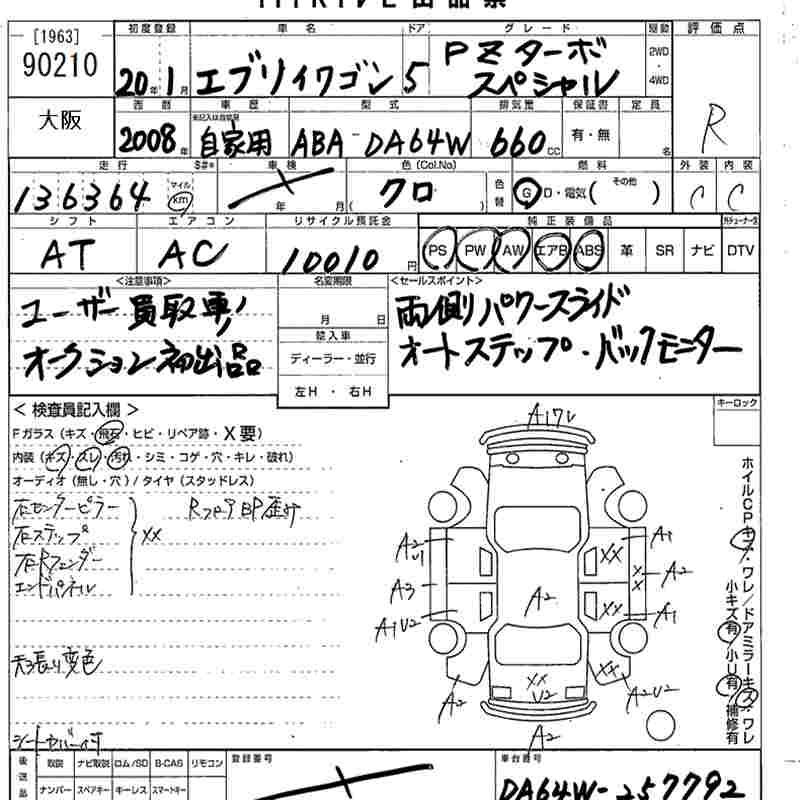 [1963] 初度登録 車名 ドア グレード 駆動 評価点
90210 20年1月 エブリイワゴン 5 PZターボ スペシャル 2WD・4WD
大阪 西暦 車歴 型式 排気量 保証書 定員 R
2008年 未記入は自家用 自家用 ABA-DA64W 660cc 有・無
走行 車検 色(Col.No) 燃料 外装 内装
136364 マイル km 年 月 ( クロ ) 色替 G・D・電気( その他 ) C C
シフト エアコン リサイクル預託金 純正装備品
AT AC 10010円 PS PW AW エアB ABS 革 SR ナビ DTV
<注意事項> 名変期限 <セールスポイント>
ユーザー買取車! 月 日 両側パワースライド
輸入車
オークション初出品 ディーラー・並行 オートステップ・バックモニター
左H ・ 右H
<検査員記入欄> キーロック
Fガラス(キズ・飛石・ヒビ・リペア跡・X要)
内装(キズ・スレ・汚れ・シミ・コゲ・穴・キレ・破れ)
オーディオ(無し・穴)/タイヤ(スタッドレス)
右センターピラー RフロアBP歪み
右ステップ XX
右Rフェンダー
エンドパネル
天張り変色
シートカバー付
A2 U1
A3
A1U2
A2
A2
XX
U2
A2
XX
XX
A1
XX A2
A1
XX
A2U2
ホイルCPキズ・ワレ/ドアミラーキズ・ワレ
小キズ有/小U有/補修有
後送品 取説 ナビ取説 ロム/SD B-CAS リモコン 登録番号 車台番号
ナンバー スペアキー キーレス スマートキー DA64W-257792